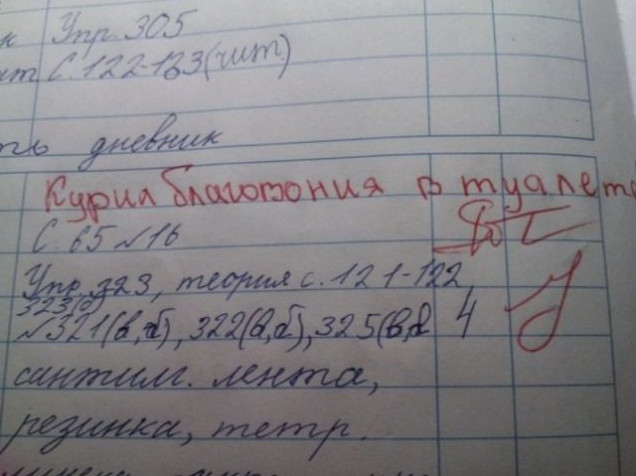 к Упр. 305
ит С. 122-123(чит)
ть дневник
Курил благовония в туалете
С. 65 №16
Упр. 323, теория с. 121-122,
№321(в,г), 322(в,г), 325(в,г 4
сантим. лента,
резинка, тетр.